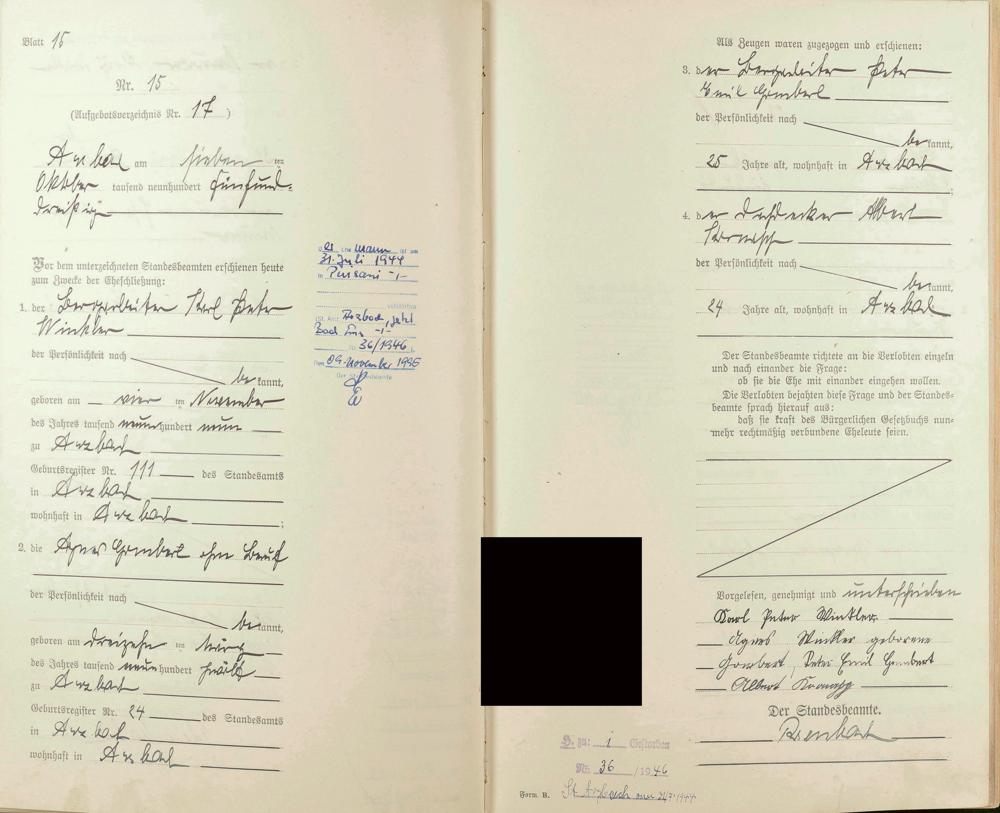 Blatt 15
Nr. 15
(Aufgebotsverzeichnis Nr. 17)
Arzbach am sieben ten
Oktober tausend neunhundert fünfund-
dreißig
Vor dem unterzeichneten Standesbeamten erschienen heute
zum Zwecke der Eheschließung:
1. der Bergarbeiter Karl Peter
Winkler
der Persönlichkeit nach
be kannt,
geboren am vier ten November
des Jahres tausend neunhundert neun
zu Arzbach
Geburtsregister Nr. 111 des Standesamts
in Arzbach
wohnhaft in Arzbach ;
2. die Agnes Gombert ohne Beruf
der Persönlichkeit nach
be kannt,
geboren am dreizehn ten März
des Jahres tausend neunhundert zwölf
zu Arzbach
Geburtsregister Nr. 24 des Standesamts
in Arzbach
wohnhaft in Arzbach
Mann ist am
31. Juli 1944
in -/-
verstorben
jetzt
Bad Ems -/-
36/1946
09. November 1995
Der Standesbeamte
Als Zeugen waren zugezogen und erschienen:
3. der Bergarbeiter Peter
Emil Gombert
der Persönlichkeit nach
be kannt,
25 Jahre alt, wohnhaft in Arzbach
;
4. der Dachdecker Albert
der Persönlichkeit nach
be kannt,
24 Jahre alt, wohnhaft in Arzbach
Der Standesbeamte richtete an die Verlobten einzeln
und nach einander die Frage:
ob sie die Ehe mit einander eingehen wollen.
Die Verlobten bejahten diese Frage und der Standes-
beamte sprach hierauf aus:
daß sie kraft des Bürgerlichen Gesetzbuchs nun-
mehr rechtmäßig verbundene Eheleute seien.
Vorgelesen, genehmigt und unterschrieben
Karl Peter Winkler
Agnes Winkler geborene
Gombert, Peter Emil Gombert
Albert
Der Standesbeamte.
zu: 1 Gestorben
Nr. 36 /1946
Form. B. St. Arzbach am 1944